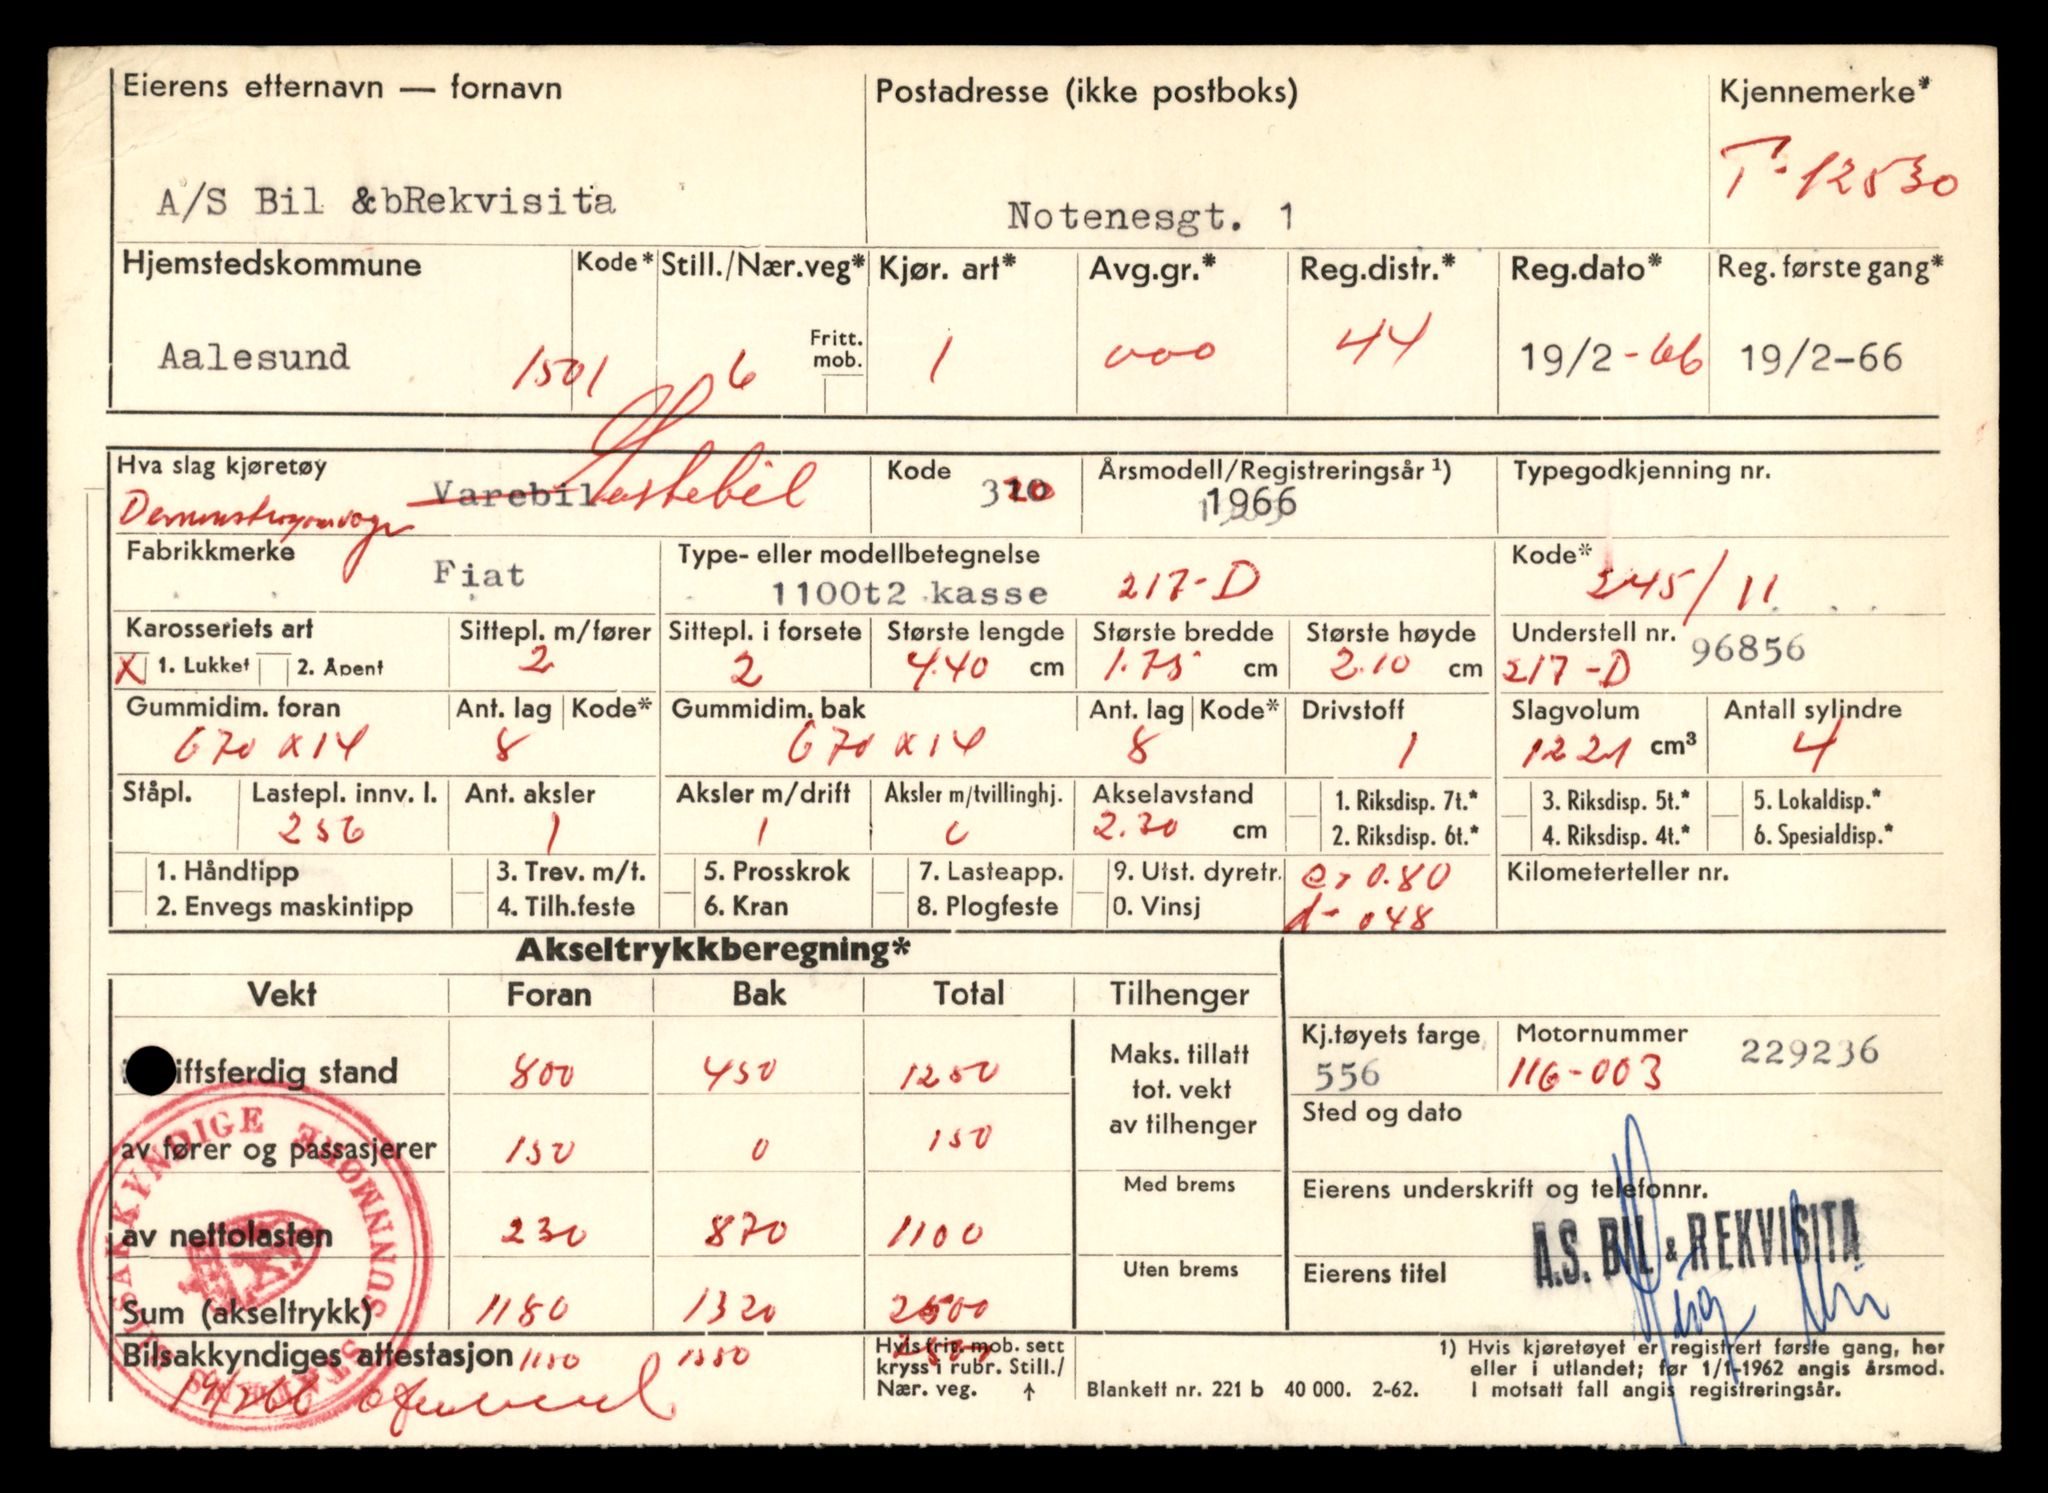 Eierens etternavn — fornavn
Postadresse (ikke postboks)
Kjennemerke*
A/S Bil &bRekvisita
Notenesgt. 1
T-12530
Hjemstedskommune
Kode*
Still./Nær.veg*
Kjør. art*
Avg.gr.*
Reg.distr.*
Reg.dato*
Reg. første gang*
Aalesund
1501
6
Fritt. mob.
1
000
44
19/2-66
19/2-66
Hva slag kjøretøy
Varebil
Lastebil
Kode
320
Årsmodell/Registreringsår 1)
1966
Typegodkjenning nr.
Fabrikkmerke
Fiat
Type- eller modellbetegnelse
1100t2 kasse
217-D
Kode*
345/11
Karosseriets art
X 1. Lukket
2. Åpent
Sittepl. m/fører
2
Sittepl. i forsete
2
Største lengde
4.40 cm
Største bredde
1.75 cm
Største høyde
2.10 cm
Understell nr.
217-D
96856
Gummidim. foran
670 x 14
Ant. lag
8
Kode*
Gummidim. bak
670 x 14
Ant. lag
8
Kode*
Drivstoff
1
Slagvolum
1221 cm³
Antall sylindre
4
Ståpl.
Lastepl. innv. l.
256
Ant. aksler
1
Aksler m/drift
1
Aksler m/tvillinghj.
0
Akselavstand
2.30 cm
1. Riksdisp. 7t.*
2. Riksdisp. 6t.*
3. Riksdisp. 5t.*
4. Riksdisp. 4t.*
5. Lokaldisp.*
6. Spesialdisp.*
1. Håndtipp
2. Envegs maskintipp
3. Trev. m/t.
4. Tilh.feste
5. Prosskrok
6. Kran
7. Lasteapp.
8. Plogfeste
9. Utst. dyretr.
0. Vinsj
0.80
048
Kilometerteller nr.
Akseltrykkberegning*
Vekt
Foran
Bak
Total
Tilhenger
iftsferdig stand
800
450
1250
Maks. tillatt
tot. vekt
av tilhenger
Kj.tøyets farge
556
Motornummer
116-003
229236
av fører og passasjerer
150
0
150
Sted og dato
Med brems
Eierens underskrift og telefonnr.
av nettolasten
230
870
1100
A.S. BIL & REKVISITA
Uten brems
Eierens titel
Sum (akseltrykk)
1180
1320
2500
Bilsakkyndiges attestasjon
1150
1350
Hvis frit. mob. sett
kryss i rubr. Still./
Nær. veg. ↑
Blankett nr. 221 b 40 000. 2-62.
1) Hvis kjøretøyet er registrert første gang, her
eller i utlandet; før 1/1-1962 angis årsmod.
I motsatt fall angis registreringsår.